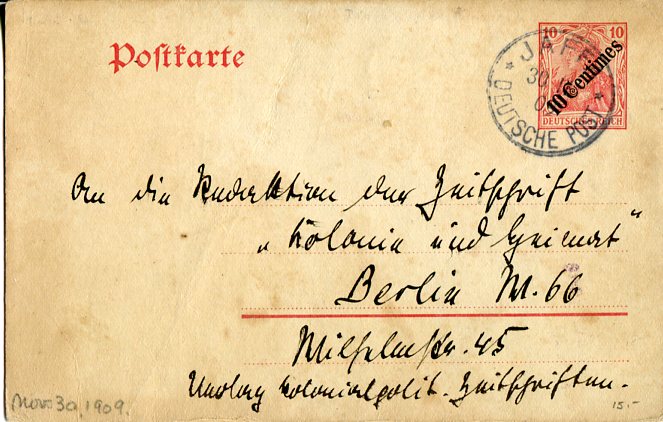 Postkarte
10 10
10 Centimes
DEUTSCHES REICH
JAFFA
30
DEUTSCHE POST
An die Redaktion der Zeitschrift
„Kolonie und Heimat"
Berlin W. 66
Wilhelmstr. 45
Verlag kolonialpolit. Zeitschriften.
Nov 30, 1909.
15.-